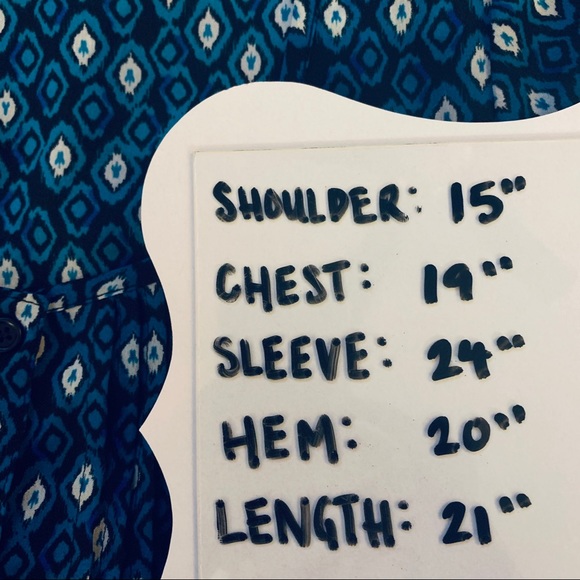 SHOULDER: 15"
CHEST: 19"
SLEEVE: 24"
HEM: 20"
LENGTH: 21"